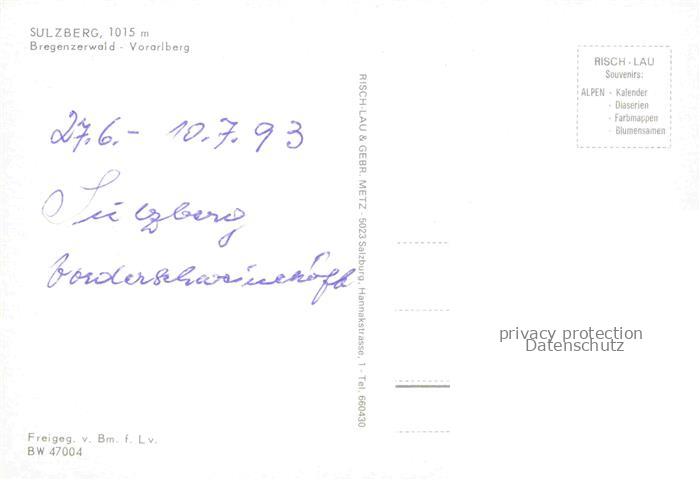 SULZBERG, 1015 m
Bregenzerwald - Vorarlberg
27.6.- 10.7.93
Sulzberg
RISCH-LAU & GEBR. METZ - 5023 Salzburg, Hannakstrasse, 1 - Tel. 660430
RISCH - LAU
Souvenirs:
ALPEN - Kalender
- Diaserien
- Farbmappen
- Blumensamen
privacy protection
Datenschutz
Freigeg. v. Bm. f. Lv.
BW 47004